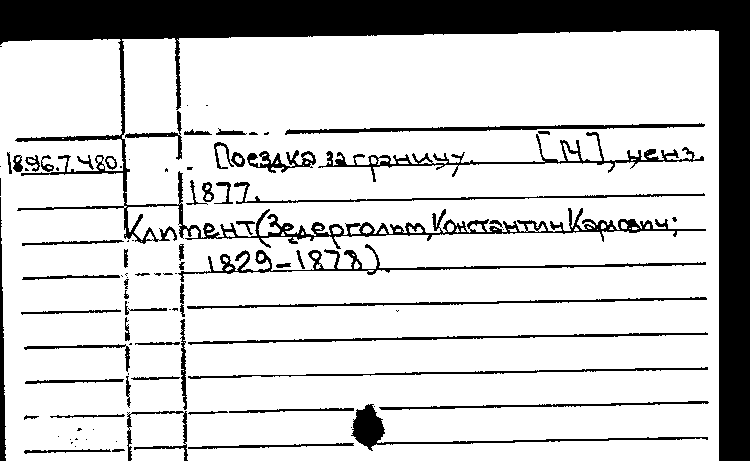 1896.7.480. Поездка за границу. [М.], ценз.
1877.
Климент (Зедергольм, Константин Карлович;
1829-1878).